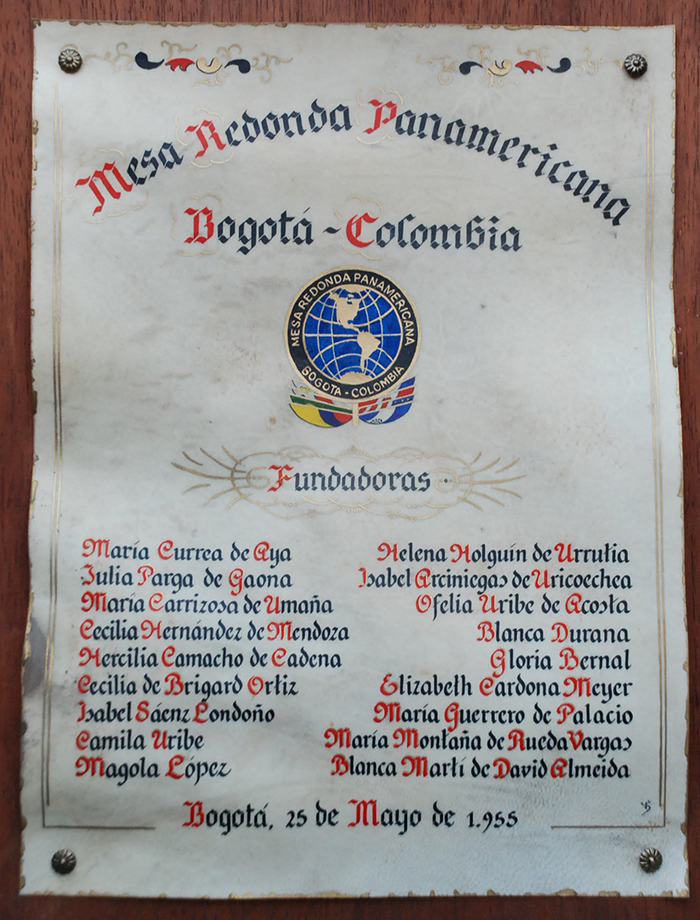 Mesa Redonda Panamericana
Bogotá - Colombia
MESA REDONDA PANAMERICANA
BOGOTA - COLOMBIA
Fundadoras
María Currea de Aya
Julia Parga de Gaona
María Carrizosa de Umaña
Cecilia Hernández de Mendoza
Hercilia Camacho de Cadena
Cecilia de Brigard Ortiz
Isabel Sáenz Londoño
Camila Uribe
Magola López
Helena Holguín de Urrutia
Isabel Arciniegas de Uricoechea
Ofelia Uribe de Acosta
Blanca Durana
Gloria Bernal
Elizabeth Cardona Meyer
María Guerrero de Palacio
María Montaña de Rueda Vargas
Blanca Martí de David Almeida
Bogotá, 25 de Mayo de 1.955